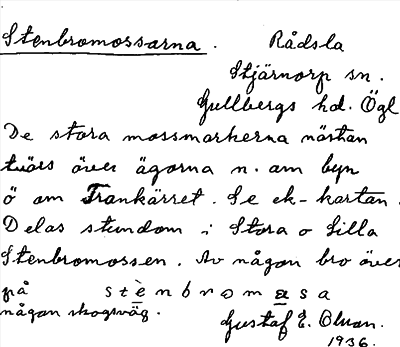 Stenbromossarna. Rådsla
Stjärnorp sn.
Gullbergs hd. Ögl
De stora mossmarkerna nästan
tvärs över ägorna n. om byn
ö om Trankärret. Se ek-kartan.
Delas stundom i Stora o Lilla
Stenbromossen. Av någon bro över
på stènbromosa
någon skogsväg.
Gustaf E. Olsson.
1936.